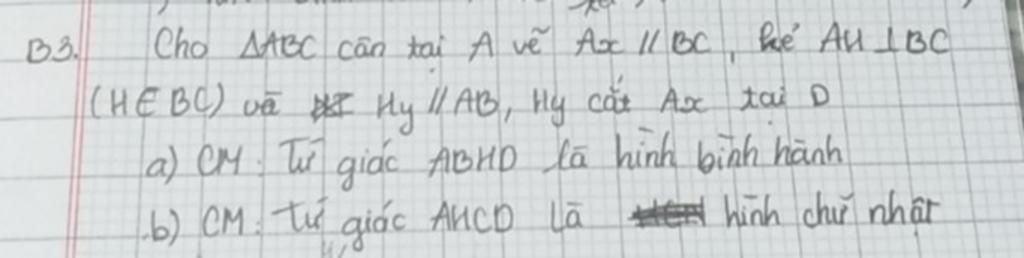 B3. Cho ΔABC cân tại A vẽ Ax // BC, kẻ AH ⊥ BC
(H ∈ BC) vẽ Hy // AB, Hy cắt Ax tại D
a) CM: Tứ giác ABHD là hình bình hành
b) CM: tứ giác AHCD là hình chữ nhật